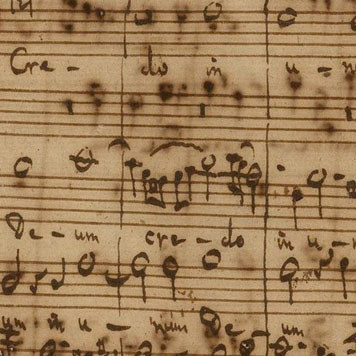 Cre - do in u - n
De - um cre - do in u -
um in u - num De - um